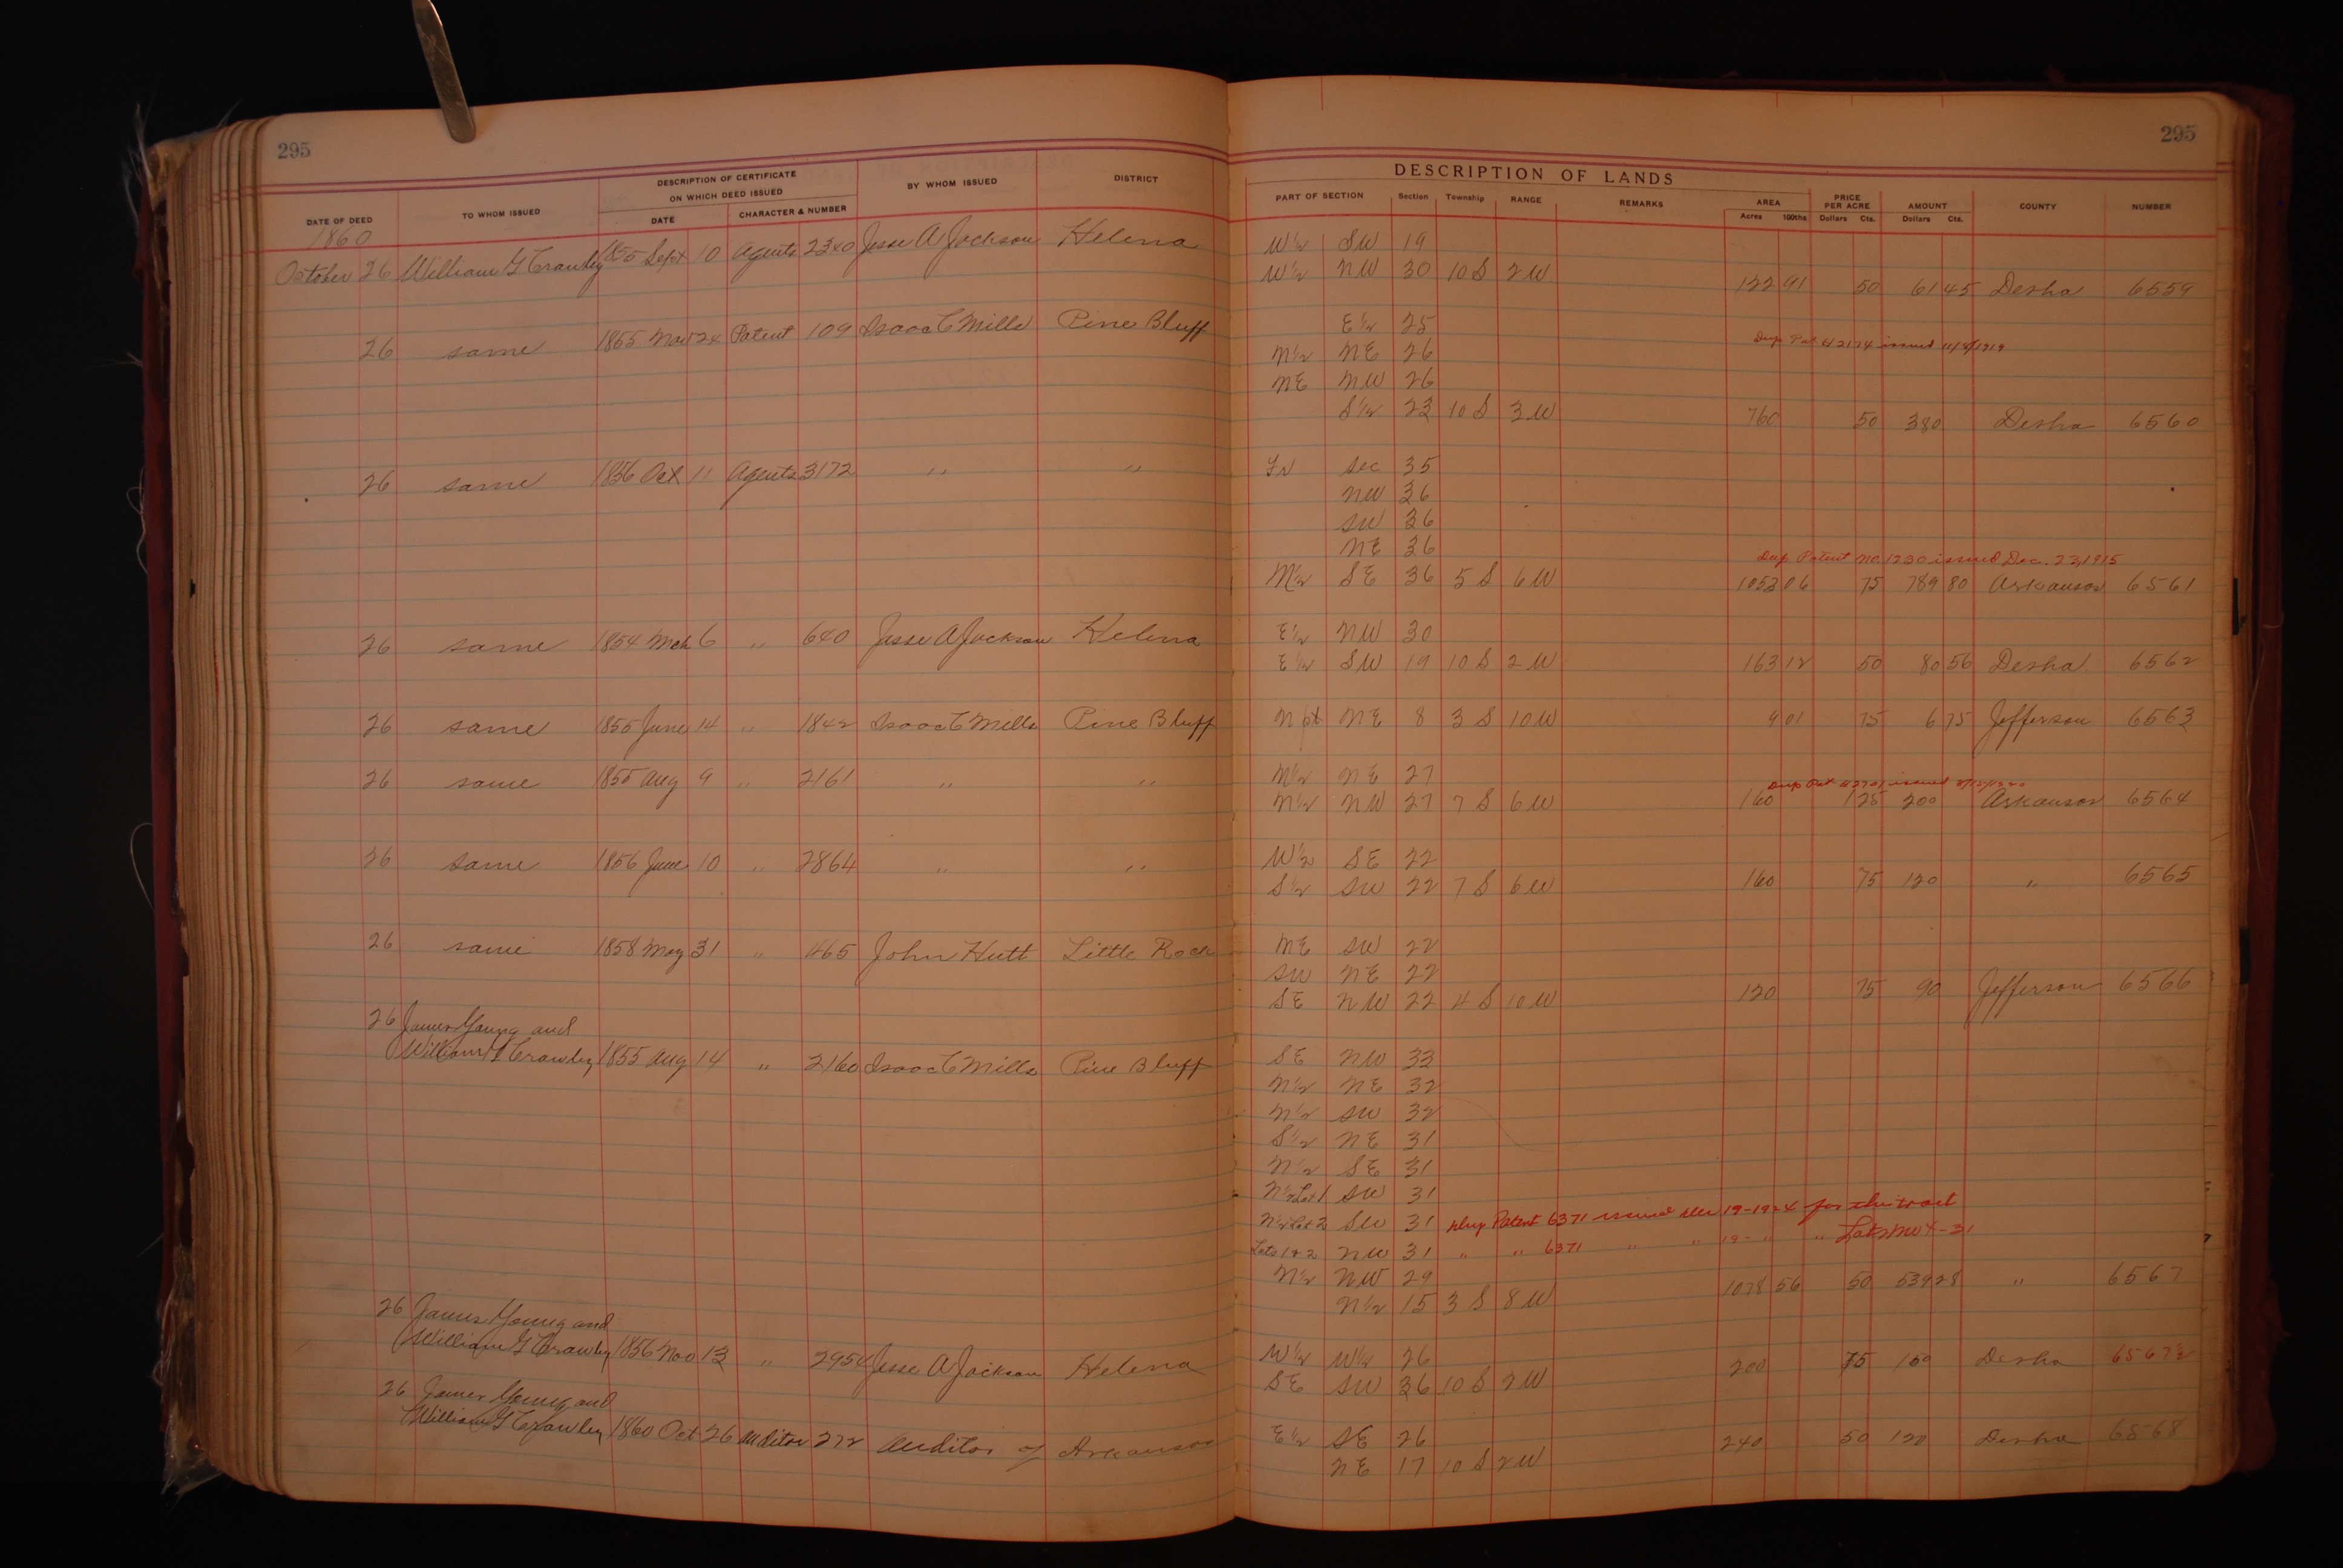 295 295
DESCRIPTION OF LANDS
DATE OF DEED TO WHOM ISSUED DESCRIPTION OF CERTIFICATE ON WHICH DEED ISSUED BY WHOM ISSUED DISTRICT PART OF SECTION Section Township RANGE REMARKS AREA PRICE PER ACRE AMOUNT COUNTY NUMBER
DATE CHARACTER & NUMBER Acres 100ths Dollars Cts. Dollars Cts.
1860
W½ SW 19
October 26 William G Crawley 1855 Sept 10 Agents 2340 Jesse A Jackson Helena W½ NW 30 10 S 2 W 122 91 50 61 45 Desha 6559
26 same 1855 Nov 24 Patent 109 Isaac C Mills Pine Bluff E½ 25
N½ NE 26 Dup Pat # 2174 issued 11/8/1919
NE NW 26
S½ 23 10 S 3 W 760 50 380 Desha 6560
26 same 1856 Oct 11 Agents 3172 " " Fr Sec 35
NW 36
SW 36
NE 36 Dup Patent No 1230 issued Dec. 22, 1915
N½ SE 36 5 S 6 W 1053 06 75 789 80 Arkansas 6561
26 same 1854 Mch 6 " 640 Jesse A Jackson Helena E½ NW 30
E½ SW 19 10 S 2 W 163 12 50 80 56 Desha 6562
26 same 1855 June 14 " 1842 Isaac C Mills Pine Bluff N pt NE 8 3 S 10 W 9 01 75 6 75 Jefferson 6563
26 same 1855 Aug 9 " 2161 " " N½ NE 27
Dup Pat issued
N½ NW 27 7 S 6 W 160 1 25 200 Arkansas 6564
26 same 1856 June 10 " 2864 " " W½ SE 22
S½ SW 22 7 S 6 W 160 75 120 " 6565
26 same 1858 May 31 " 465 John Hutt Little Rock NE SW 22
SW NE 22
SE NW 22 4 S 10 W 120 75 90 Jefferson 6566
26 James Young and
William G Crawley 1855 Aug 14 " 2160 Isaac C Mills Pine Bluff SE NW 33
N½ NE 32
N½ SW 32
S½ NE 31
N½ SE 31
N½ Lot 1 SW 31
N½ Lot 2 SW 31 Dup Patent 6371 issued Dec 19-1924 for this tract
Lots 1 & 2 NW 31 " " 6371 " " 19- " " Lots NW 4-31
N½ NW 29 1078 56 50 539 28 " 6567
N½ 15 3 S 8 W
26 James Young and
William G Crawley 1856 Nov 13 " 2954 Jesse A Jackson Helena W½ W½ 26 200 75 150 Desha 6567½
SE SW 36 10 S 2 W
26 James Young and
William G Crawley 1860 Oct 26 Auditor 272 Auditor of Arkansas E½ SE 26 240 50 120 Desha 6568
NE 17 10 S 2 W